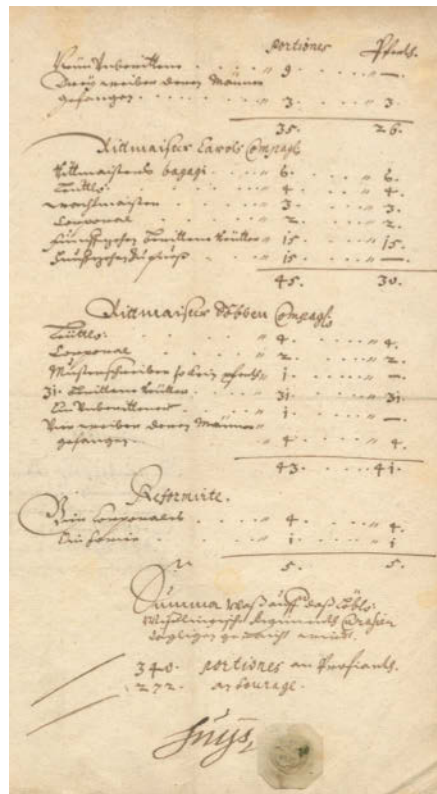 portiones Pferdt.
Neun Unberittene . . . " 9 . . . . " —.
Drey weiber deren Männer
gefangen . . . . . " 3 . . . . " 3.
35. 26.
Rittmaister Carols Compag:
Rittmaisters bagagi . . . " 6. . . . . " 6.
Leüttn: . . . . " 4 . . . . " 4.
wachtmaister . . . . " 3. . . . . " 3.
Corporal . . . . " 2. . . . . " 2.
fünffzehen berittene Reütter " 15 . . . . " 15.
" 15 . . . . " —.
45. 30.
Rittmaister Döbben Compag:
Leüttn: . . . . " 4. . . . . " 4.
Corporal . . . . " 2. . . . . " 2.
Musterschreiber so kein pferdt " 1 . . . . " —.
31. berittene Reütter . . . " 31 . . . . " 31.
Ein Unberittener . . . . " 1. . . . . " —.
Vier weiber deren Männer
gefangen . . . . " 4. . . . . " 4.
43. . . . . " 41.
Reformirte.
Corporales . . . . " 4. . . . . " 4.
Ein . . . . " 1. . . . . " 1
5. 5.
Summa waß auff daß Löbl:
Regiments
340. portiones an Profiandt.
272. an fourage.
Suÿs,